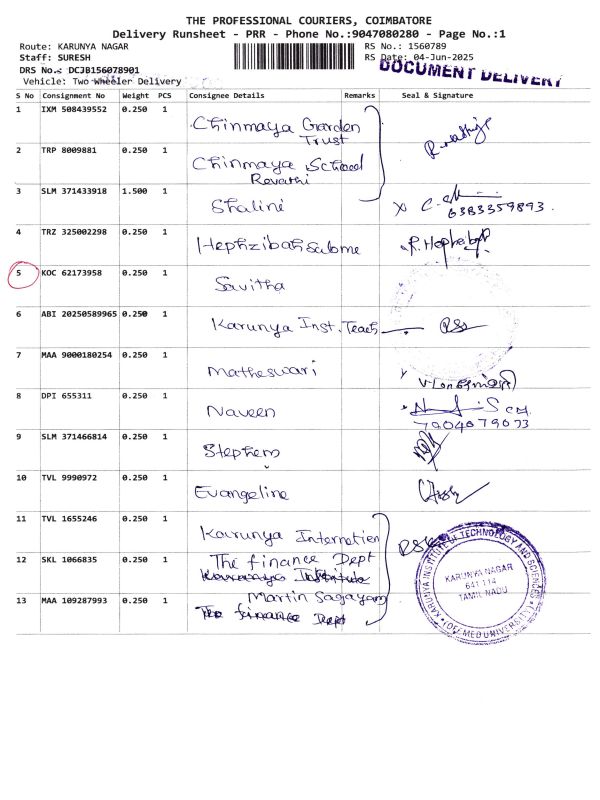 THE PROFESSIONAL COURIERS, COIMBATORE
Delivery Runsheet - PRR - Phone No.:9047080280 - Page No.:1
Route: KARUNYA NAGAR
RS No.: 1560789
Staff: SURESH
RS Date: 04-Jun-2025
DRS No.: DCJB156078901
DOCUMENT DELIVERY
Vehicle: Two Wheeler Delivery
S No Consignment No Weight PCS Consignee Details Remarks Seal & Signature
1 IXM 508439552 0.250 1 Chinmaya Garden Trust
2 TRP 8009881 0.250 1 Chinmaya School Revathi
3 SLM 371433918 1.500 1 Shalini 6383359893.
4 TRZ 325002298 0.250 1 Hephzibah Salome
5 KOC 62173958 0.250 1 Savitha
6 ABI 20250589965 0.250 1 Karunya Inst. Teach
7 MAA 9000180254 0.250 1 Matheswari
8 DPI 655311 0.250 1 Naveen 7904079073
9 SLM 371466814 0.250 1 Stephen
10 TVL 9990972 0.250 1 Evangeline
11 TVL 1655246 0.250 1 Karunya Internation
12 SKL 1066835 0.250 1 The finance Dept
13 MAA 109287993 0.250 1 Martin Sagayam
The finance Dept
KARUNYA INSTITUTE OF TECHNOLOGY AND SCIENCES
(DEEMED UNIVERSITY)
KARUNYA NAGAR
641 114
TAMIL NADU